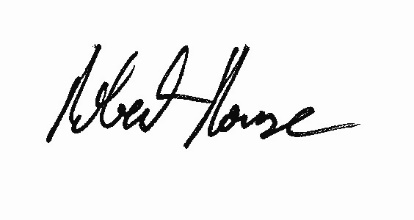 Robert House